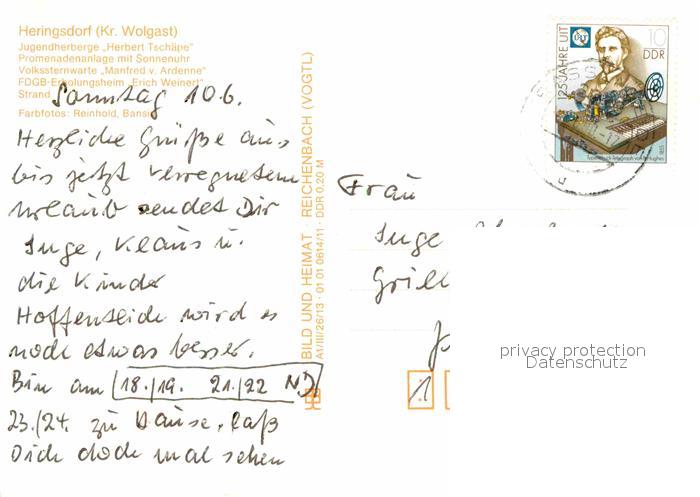 Heringsdorf (Kr. Wolgast)
Jugendherberge „Herbert Tschäpe"
Promenadenanlage mit Sonnenuhr
Volkssternwarte „Manfred v. Ardenne"
FDGB-Erholungsheim „Erich Weinert"
Strand
Farbfotos: Reinhold, Bansin
Sonntag 10.6.
Herzliche Grüße aus
bis jetzt verregnetem
Urlaub sendet Dir
Inge, Klaus u.
die Kinder
Hoffentlich wird es
noch etwas besser.
Bin am (18./19. 21./22 ND)
23./24. zu Hause, laß
Dich doch mal sehen
BILD UND HEIMAT · REICHENBACH (VOGTL)
A1/III/26/13 · 01 01 0614/11 · DDR 0,20 M
125 JAHRE UIT
UIT
10
DDR
1855
Frau
Inge
Grill
1
privacy protection
Datenschutz